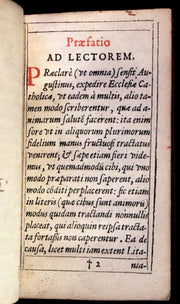 Præfatio
AD LECTOREM.
PRæclarè (vt omnia) sensit Au-
gustinus, expedire Ecclesiæ Ca-
tholicæ, vt eadem à multis, alio ta-
men modo scriberentur, quæ ad a-
nimarum salutē facerent: ita enim
fore vt in aliquorum plurimorum
fidelium manus fructuosè tractatus
venirent; & sæpe etiam fiers vide-
mus, vt quemadmodũ cibi, qui vno
modo præparati non saperent, alio
modo cōditi perplacerent: sic etiam
in literis (quæ cibus sunt animorũ)
modus quidam tractandi nonnullis
placeat, qui alioquin reipsa tracta-
ta fortaßis non caperentur. Ea de
causa, licet multi iam extent Lita-
† 2
nia-